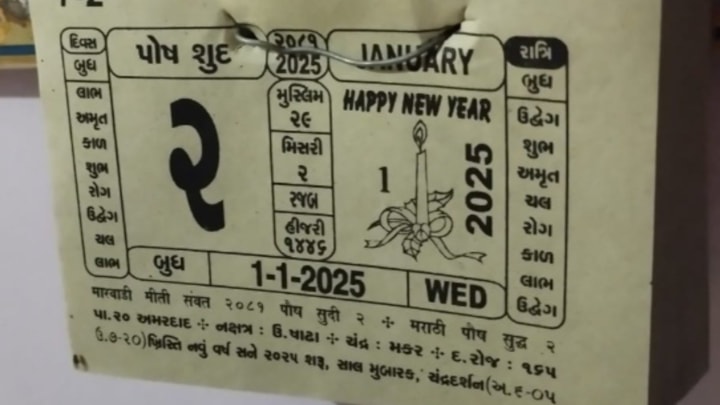 દિવસ
બુધ
લાભ
અમૃત
કાળ
શુભ
રોગ
ઉદ્વેગ
ચલ
લાભ
પોષ શુદ
૨
બુધ
૨૦૮૧
2025
મુસ્લિમ
૨૯
મિસરી
૨
રજબ
હીજરી
૧૪૪૬
JANUARY
HAPPY NEW YEAR
1
2025
રાત્રિ
બુધ
ઉદ્વેગ
શુભ
અમૃત
ચલ
રોગ
કાળ
લાભ
ઉદ્વેગ
1-1-2025
WED
मारवाडी मीती संवत २०८१ पौष सुदी २ ÷ मराठी पौष सुद्ध २
પા.૨૦ અમરદાદ ÷ નક્ષત્ર : ઉ.ષાઢા ÷ ચંદ્ર : મકર ÷ દ.રોજ : ૧૬૫
(ઉ.૭-૨૦) ખ્રિસ્તિ નવું વર્ષ સને ૨૦૨૫ શરૂ, સાલ મુબારક, ચંદ્રદર્શન(અ.૬-૦૫